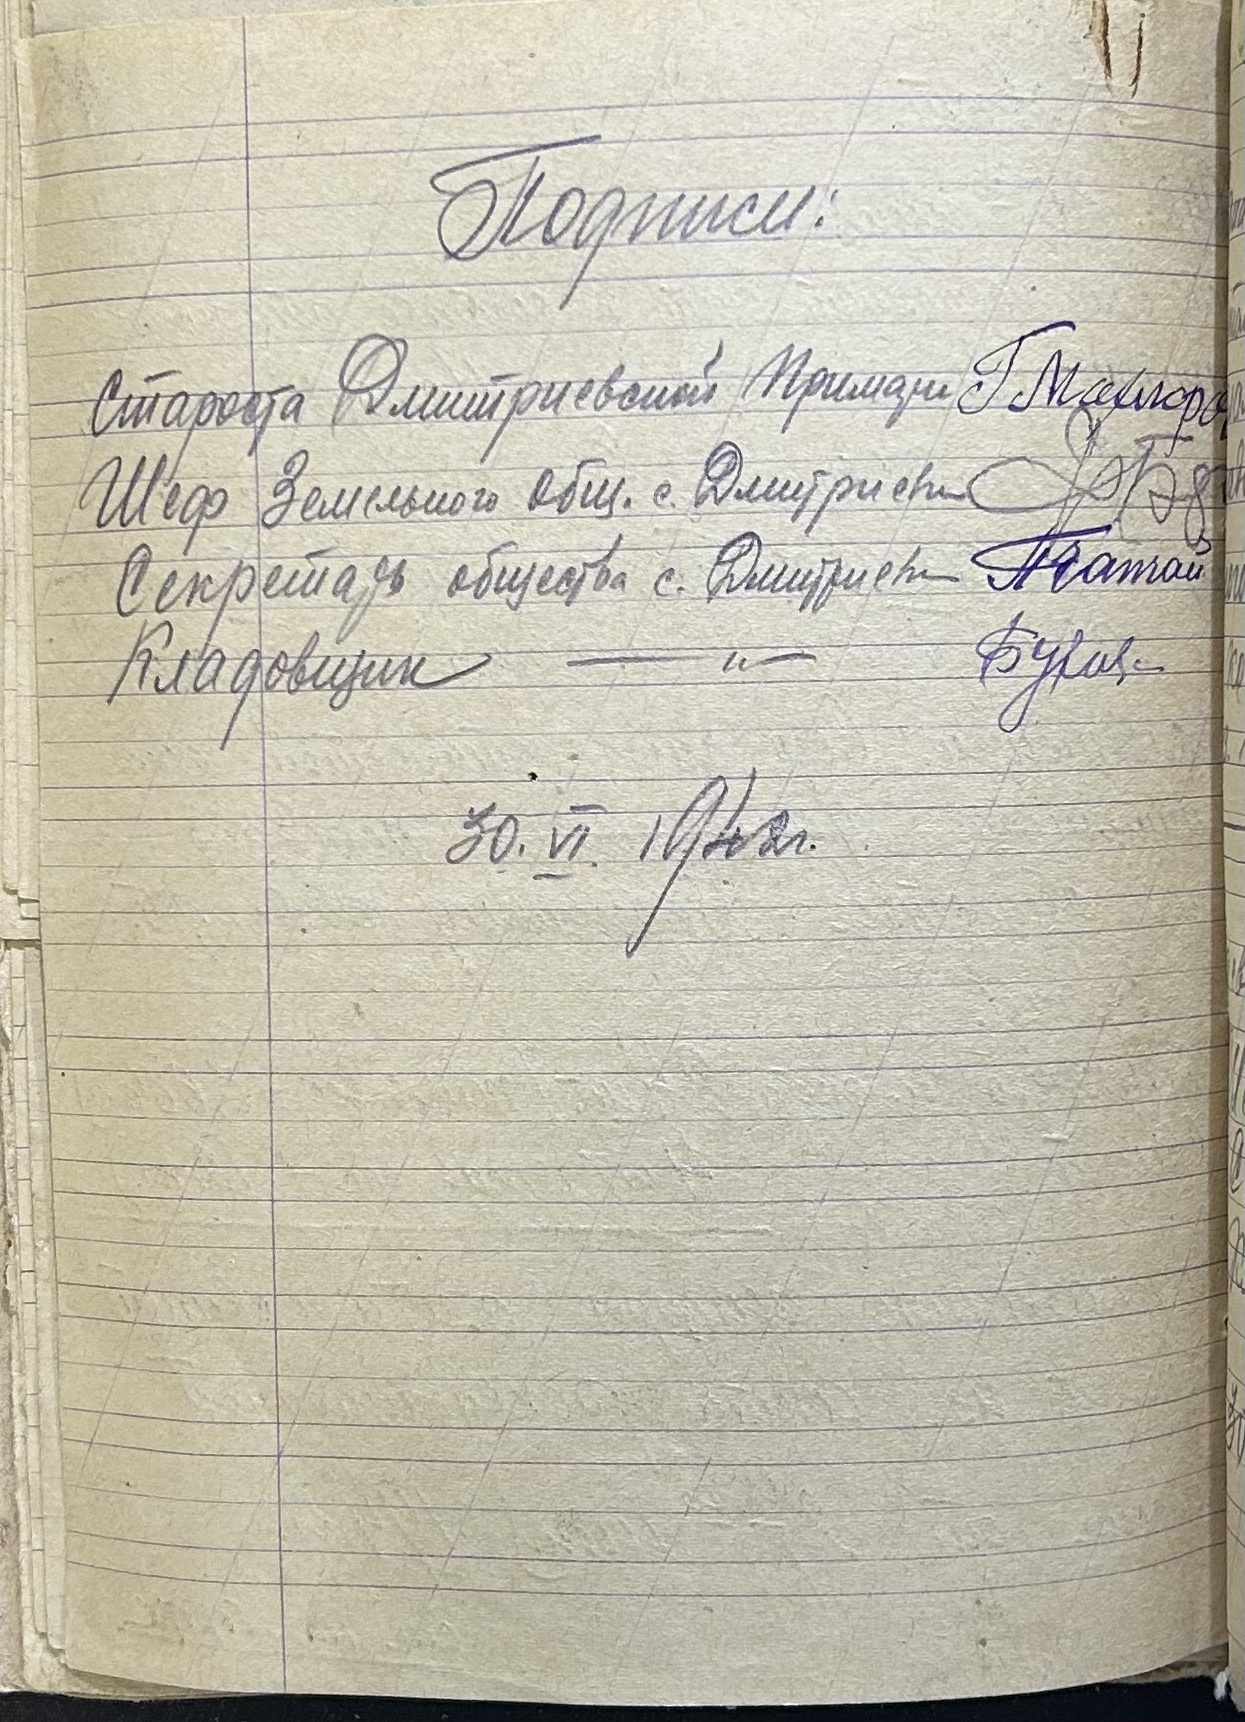 Подписи:
Староста Дмитриевской Примари
Шеф Земельного общ. с. Дмитриевки
Секретарь общества с. Дмитриевки
Кладовщик — " —
30. VI 1942г.